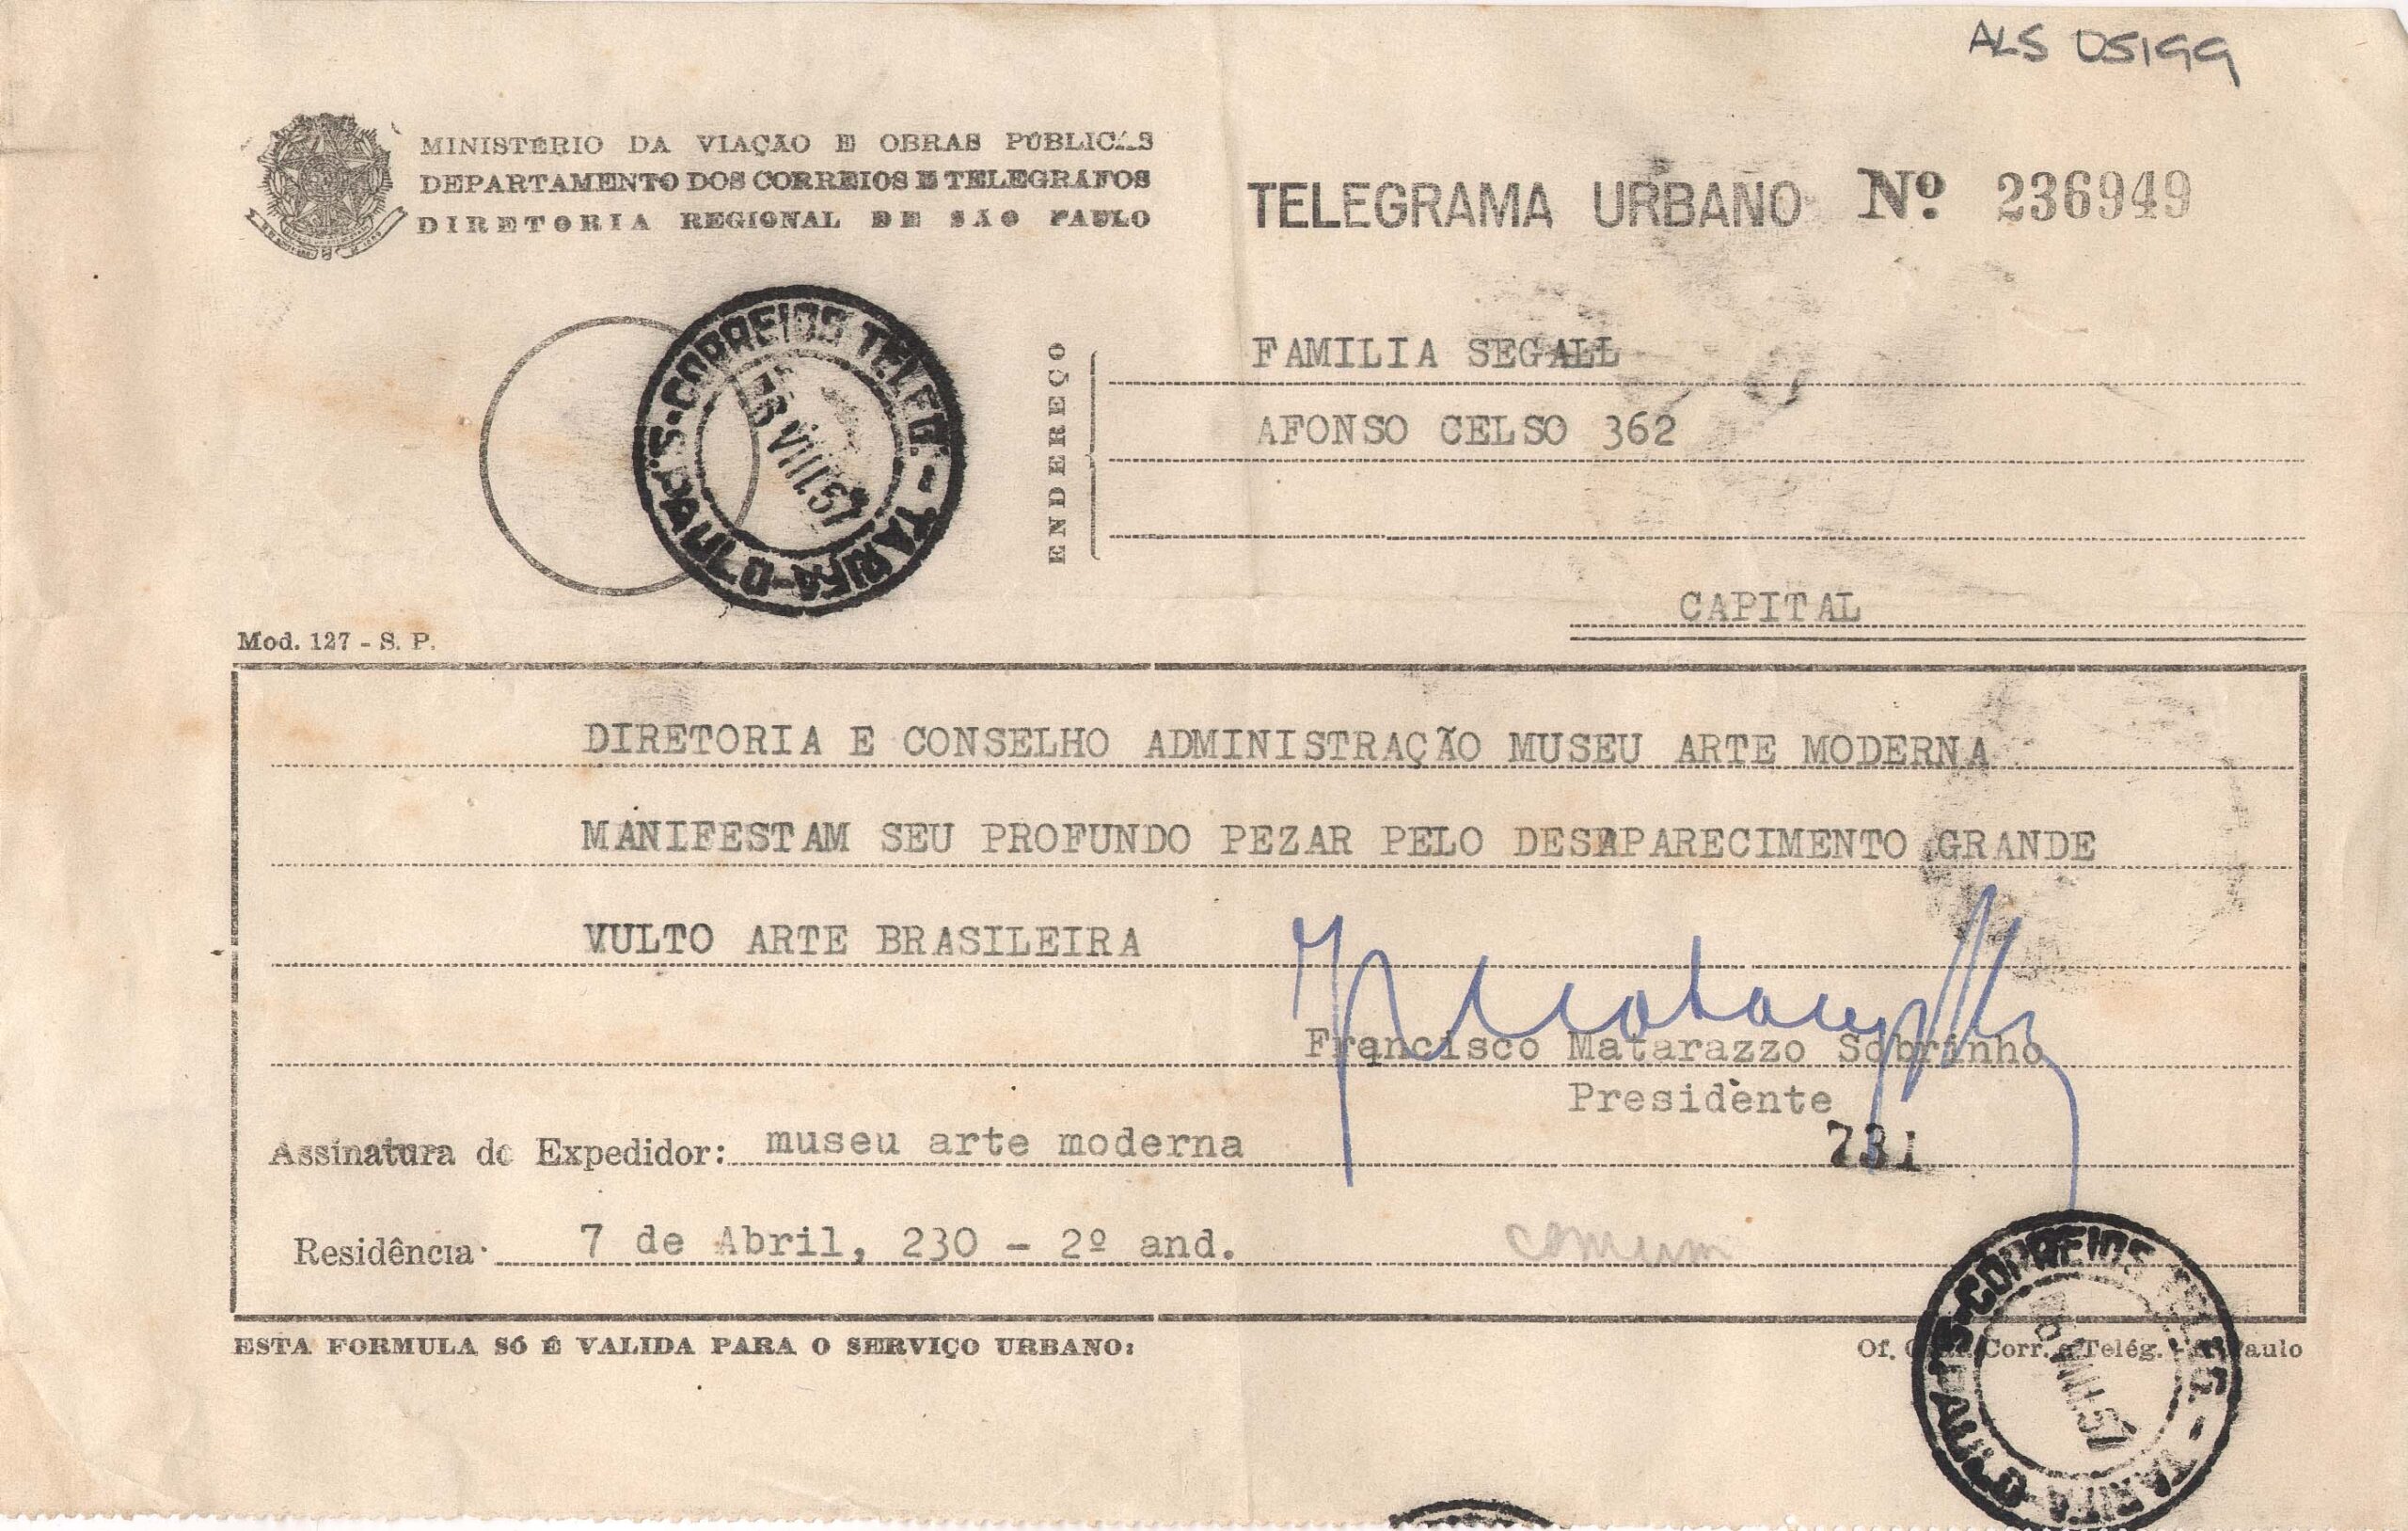 ALS 05199
MINISTÉRIO DA VIAÇÃO E OBRAS PÚBLICAS
DEPARTAMENTO DOS CORREIOS E TELEGRAFOS
DIRETORIA REGIONAL DE SÃO PAULO
TELEGRAMA URBANO Nº 236949
S. PAULO - CORREIOS TELEG. - TARIFA
VIII.57
ENDEREÇO
FAMILIA SEGALL
AFONSO CELSO 362
CAPITAL
Mod. 127 - S. P.
DIRETORIA E CONSELHO ADMINISTRAÇÃO MUSEU ARTE MODERNA
MANIFESTAM SEU PROFUNDO PEZAR PELO DESAPARECIMENTO GRANDE
VULTO ARTE BRASILEIRA
Francisco Matarazzo Sobrinho
Presidente
731
Assinatura do Expedidor: museu arte moderna
Residência 7 de Abril, 230 - 2º and.
comum
ESTA FORMULA SÓ É VALIDA PARA O SERVIÇO URBANO:
Of. Corr. e Telég. - Paulo
S. PAULO - CORREIOS TELEG. - TARIFA
VIII.57